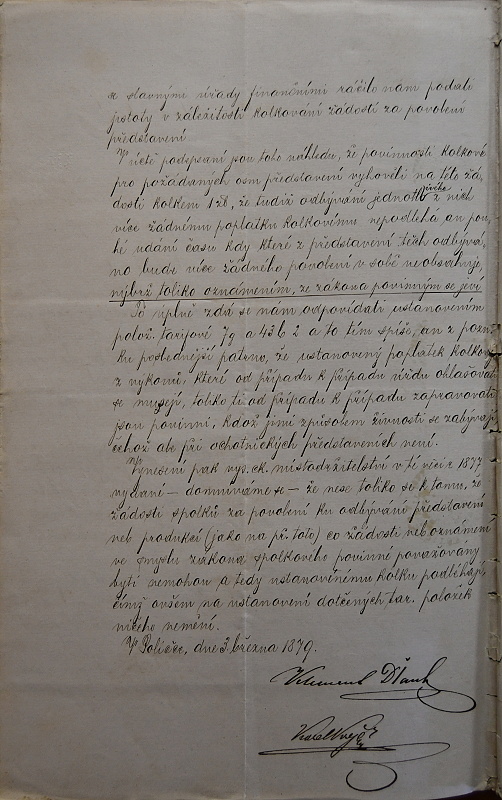 a slavnými úřady finančními ráčilo nám podati
jistoty v záležitosti kolkování žádostí za povolení
představení
V úctě podepsaní jsou toho náhledu, že povinnosti kolkové
pro požádaných osm představení vyhověti na této žá-
dosti kolkem 1 zl., že tudíž odbývání jednotlivého z nich
více žádnému poplatku kolkovému nepodléhá an pou-
hé udání času kdy které z představení těch odbývá-
no bude více žádného povolení v sobě neobsahuje,
nýbrž toliko oznámením, ze zákona povinným se jeví
To úplně zdá se nám odpovídati ustanovením
polož. tarifové 7 g a 43 b 2 a to tím spíše, an z pozn.
ku poslednější patrno, že ustanovený poplatek kolkový
z výkonů, které od případu k případu úřadu ohlašovati
se musejí, toliko ti od případu k případu zapravovati
jsou povinni, kdož jimi způsobem živnosti se zabývají
čehož ale při ochotnických představeních není.
Vynesení pak vys. ck. místodržitelství v té věci r. 1877
vydané – domníváme se – že nese toliko se k tomu, že
žádosti spolků za povolení ku odbývání představení
neb produkcí (jako na př. tato) co žádosti neb oznámení
ve smyslu zákona spolkového povinné považovány
býti nemohou a tedy ustanovenému kolku podléhají,
čímž ovšem na ustanovení dotčených tar. položek
ničeho nemění.
V Poličce, dne 3. března 1879.
Karel